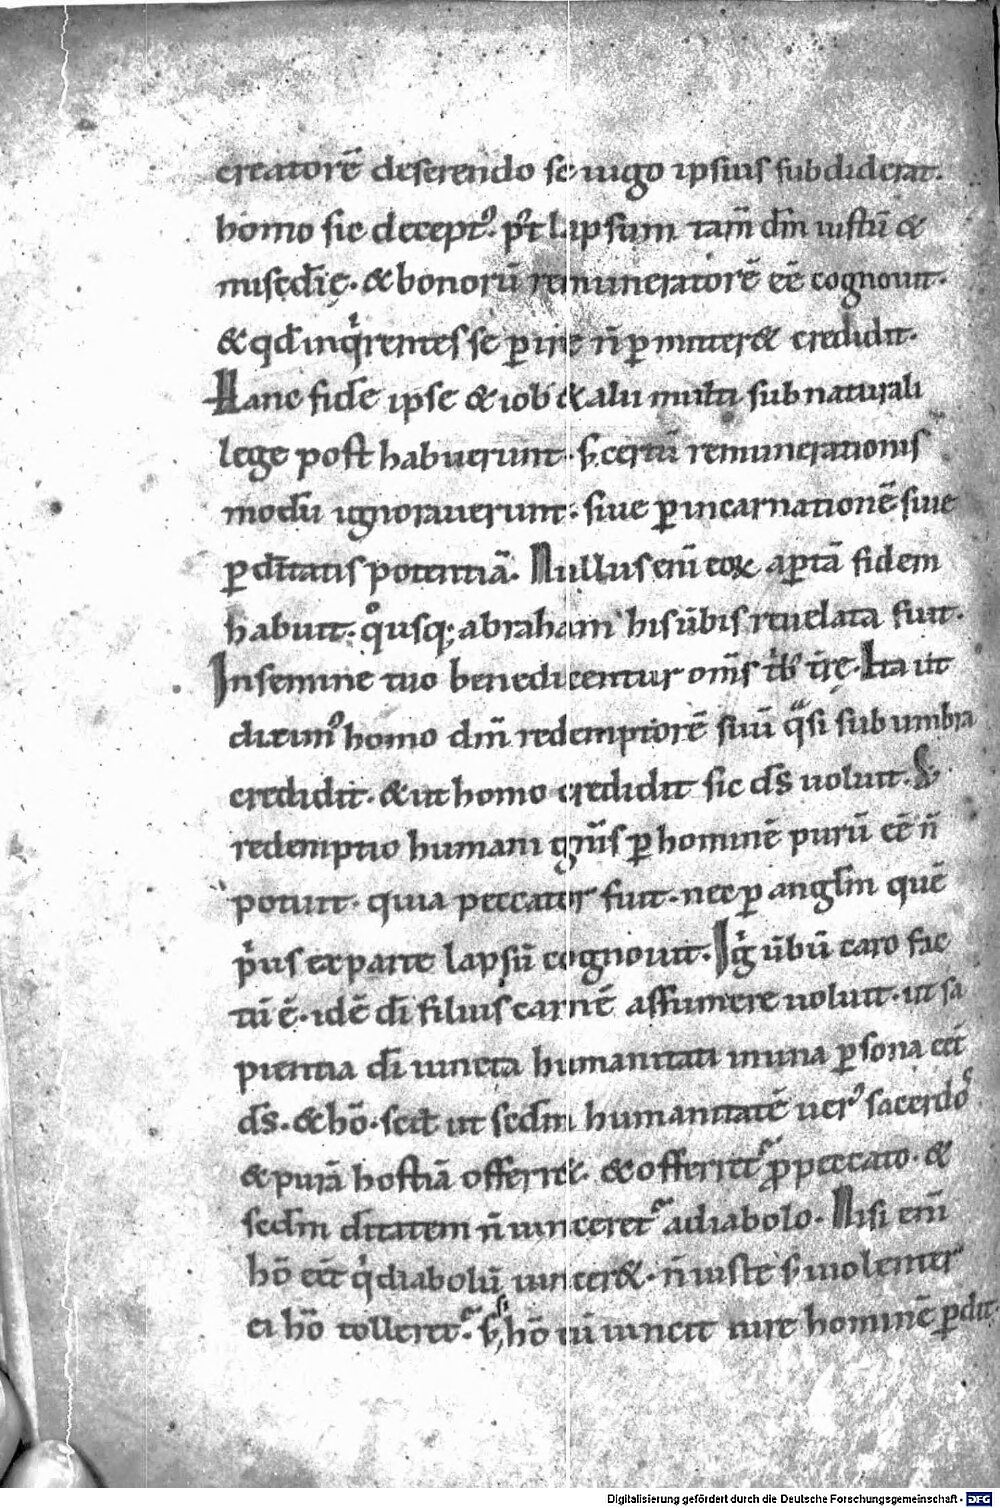 creatorē deserendo se iugo ipsius subdiderat.
homo sic decept⁹. p⁹t lapsum tam̄ dm̄ iustū &
misc̄dię. & bonorū remuneratorē eē cognouit.
& qd̄ inqͥrentes se ꝑire n̄ ꝑmitter& credidit.
Hanc fidē ipse & iob & alii multi sub naturali
lege post habuerunt. s; certū remunerationis
modū ignorauerunt. siue ꝑ incarnationē siue
ꝑ dītatis potentiā. Nullus eni᷒ eoꝝ aꝑtā fidem
habuit. qͦusq; abraham his ūbis reuelata fuit.
In semine tuo benedicentur om̄s tͥb᷒ tr̄ę. Ita ut
dixim⁹ homo dm̄ redemptorē suū qͣsi sub umbra
credidit. & ut homo credidit sic ds̄ uoluit. S;
redemptio humani gn̄is ꝑ hominē purū eē n̄
potuit. quia peccator fuit. nec ꝑ angl̄m quē
pͥus ex parte lapsū cognouit. Igͥ ūbū caro fac
tū ē. idē dī filius carnē assumere uoluit. ut sa
pientia dī iuncta humanitati in una ꝑsona eēt
ds̄. & hō. scd̄ ut scd̄m humanitatē uer⁹ sacerdos
& purā hostiā offerr&. & offerret᷑ ꝓ peccato. &
scd̄m dītatem n̄ uinceret᷑ a diabolo. Nisi enī
hō eēt qͥ diabolū uincer&. n̄ iuste s; uiolenter
ei hō tolleret᷑. S; hō tū iuncit iure hominē ꝑdit
Digitalisierung gefördert durch die Deutsche Forschungsgemeinschaft - DFG